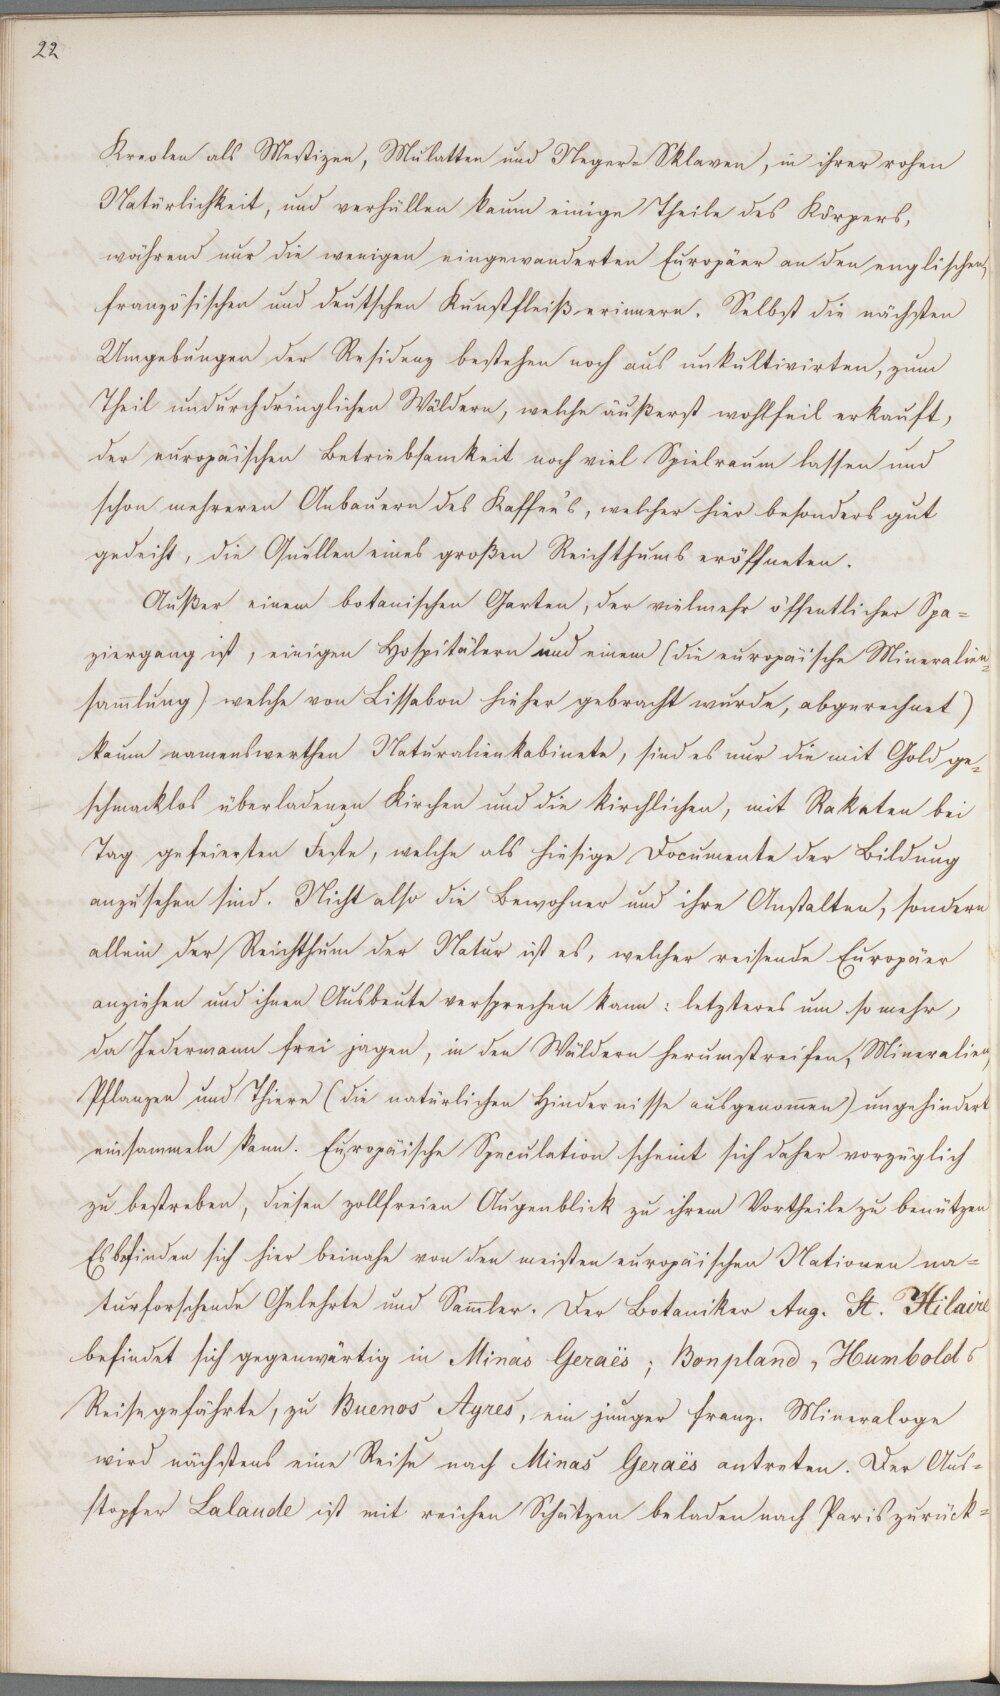 22
Kreolen als Mestizen, Mulatten und Neger=Sklaven, in ihrer rohen
Natürlichkeit, und verhüllen kaum einige Theile des Körpers,
während nur die wenigen eingewanderten Europäer an den englischen,
französischen und deutschen Kunstfleiß erinnern. Selbst die nächsten
Umgebungen der Residenz bestehen noch aus unkultivirten, zum
Theil undurchdringlichen Wäldern, welche äußerst wohlfeil erkauft,
der europäischen Betriebsamkeit noch viel Spielraum lassen und
schon mehreren Anbauern des Kaffee's, welcher hier besonders gut
gedeiht, die Quellen eines großen Reichthums eröffneten.
Außer einem botanischen Garten, der vielmehr öffentlicher Spa=
ziergang ist, einigen Hospitälern und einem (die europäische Mineralien=
sam̄lung) welche von Lissabon hieher gebracht wurde, abgerechnet)
kaum namenswerthen Naturalienkabinete, sind es nur die mit Gold ge=
schmacklos überladenen Kirchen und die kirchlichen, mit Raketen bei
Tag gefeierten Feste, welche als hiesige Documente der Bildung
anzusehen sind. Nicht also die Bewohner und ihre Anstalten, sondern
allein der Reichthum der Natur ist es, welcher reisende Europäer
anziehen und ihnen Ausbeute versprechen kann: letzteres um so mehr,
da Jedermann frei jagen, in den Wäldern herumstreifen, Mineralien,
Pflanzen und Thiere (die natürlichen Hindernisse ausgenom̄en) ungehindert
einsammeln kann. Europäische Speculation scheint sich daher vorzüglich
zu bestreben, diesen zollfreien Augenblick zu ihrem Vortheile zu benützen
Es befinden sich hier beinahe von den meisten europäischen Nationen na=
turforschende Gelehrte und Sam̄ler. Der Botaniker Aug. St. Hilaire
befindet sich gegenwärtig in Minas Geraës; Bonpland, Humbolds
Reisegefährte, zu Buenos Ayres, ein junger franz. Mineraloge
wird nächstens eine Reise nach Minas Geraës antreten. Der Aus=
stopfer Lalande ist mit reichen Schätzen beladen nach Paris zurück=